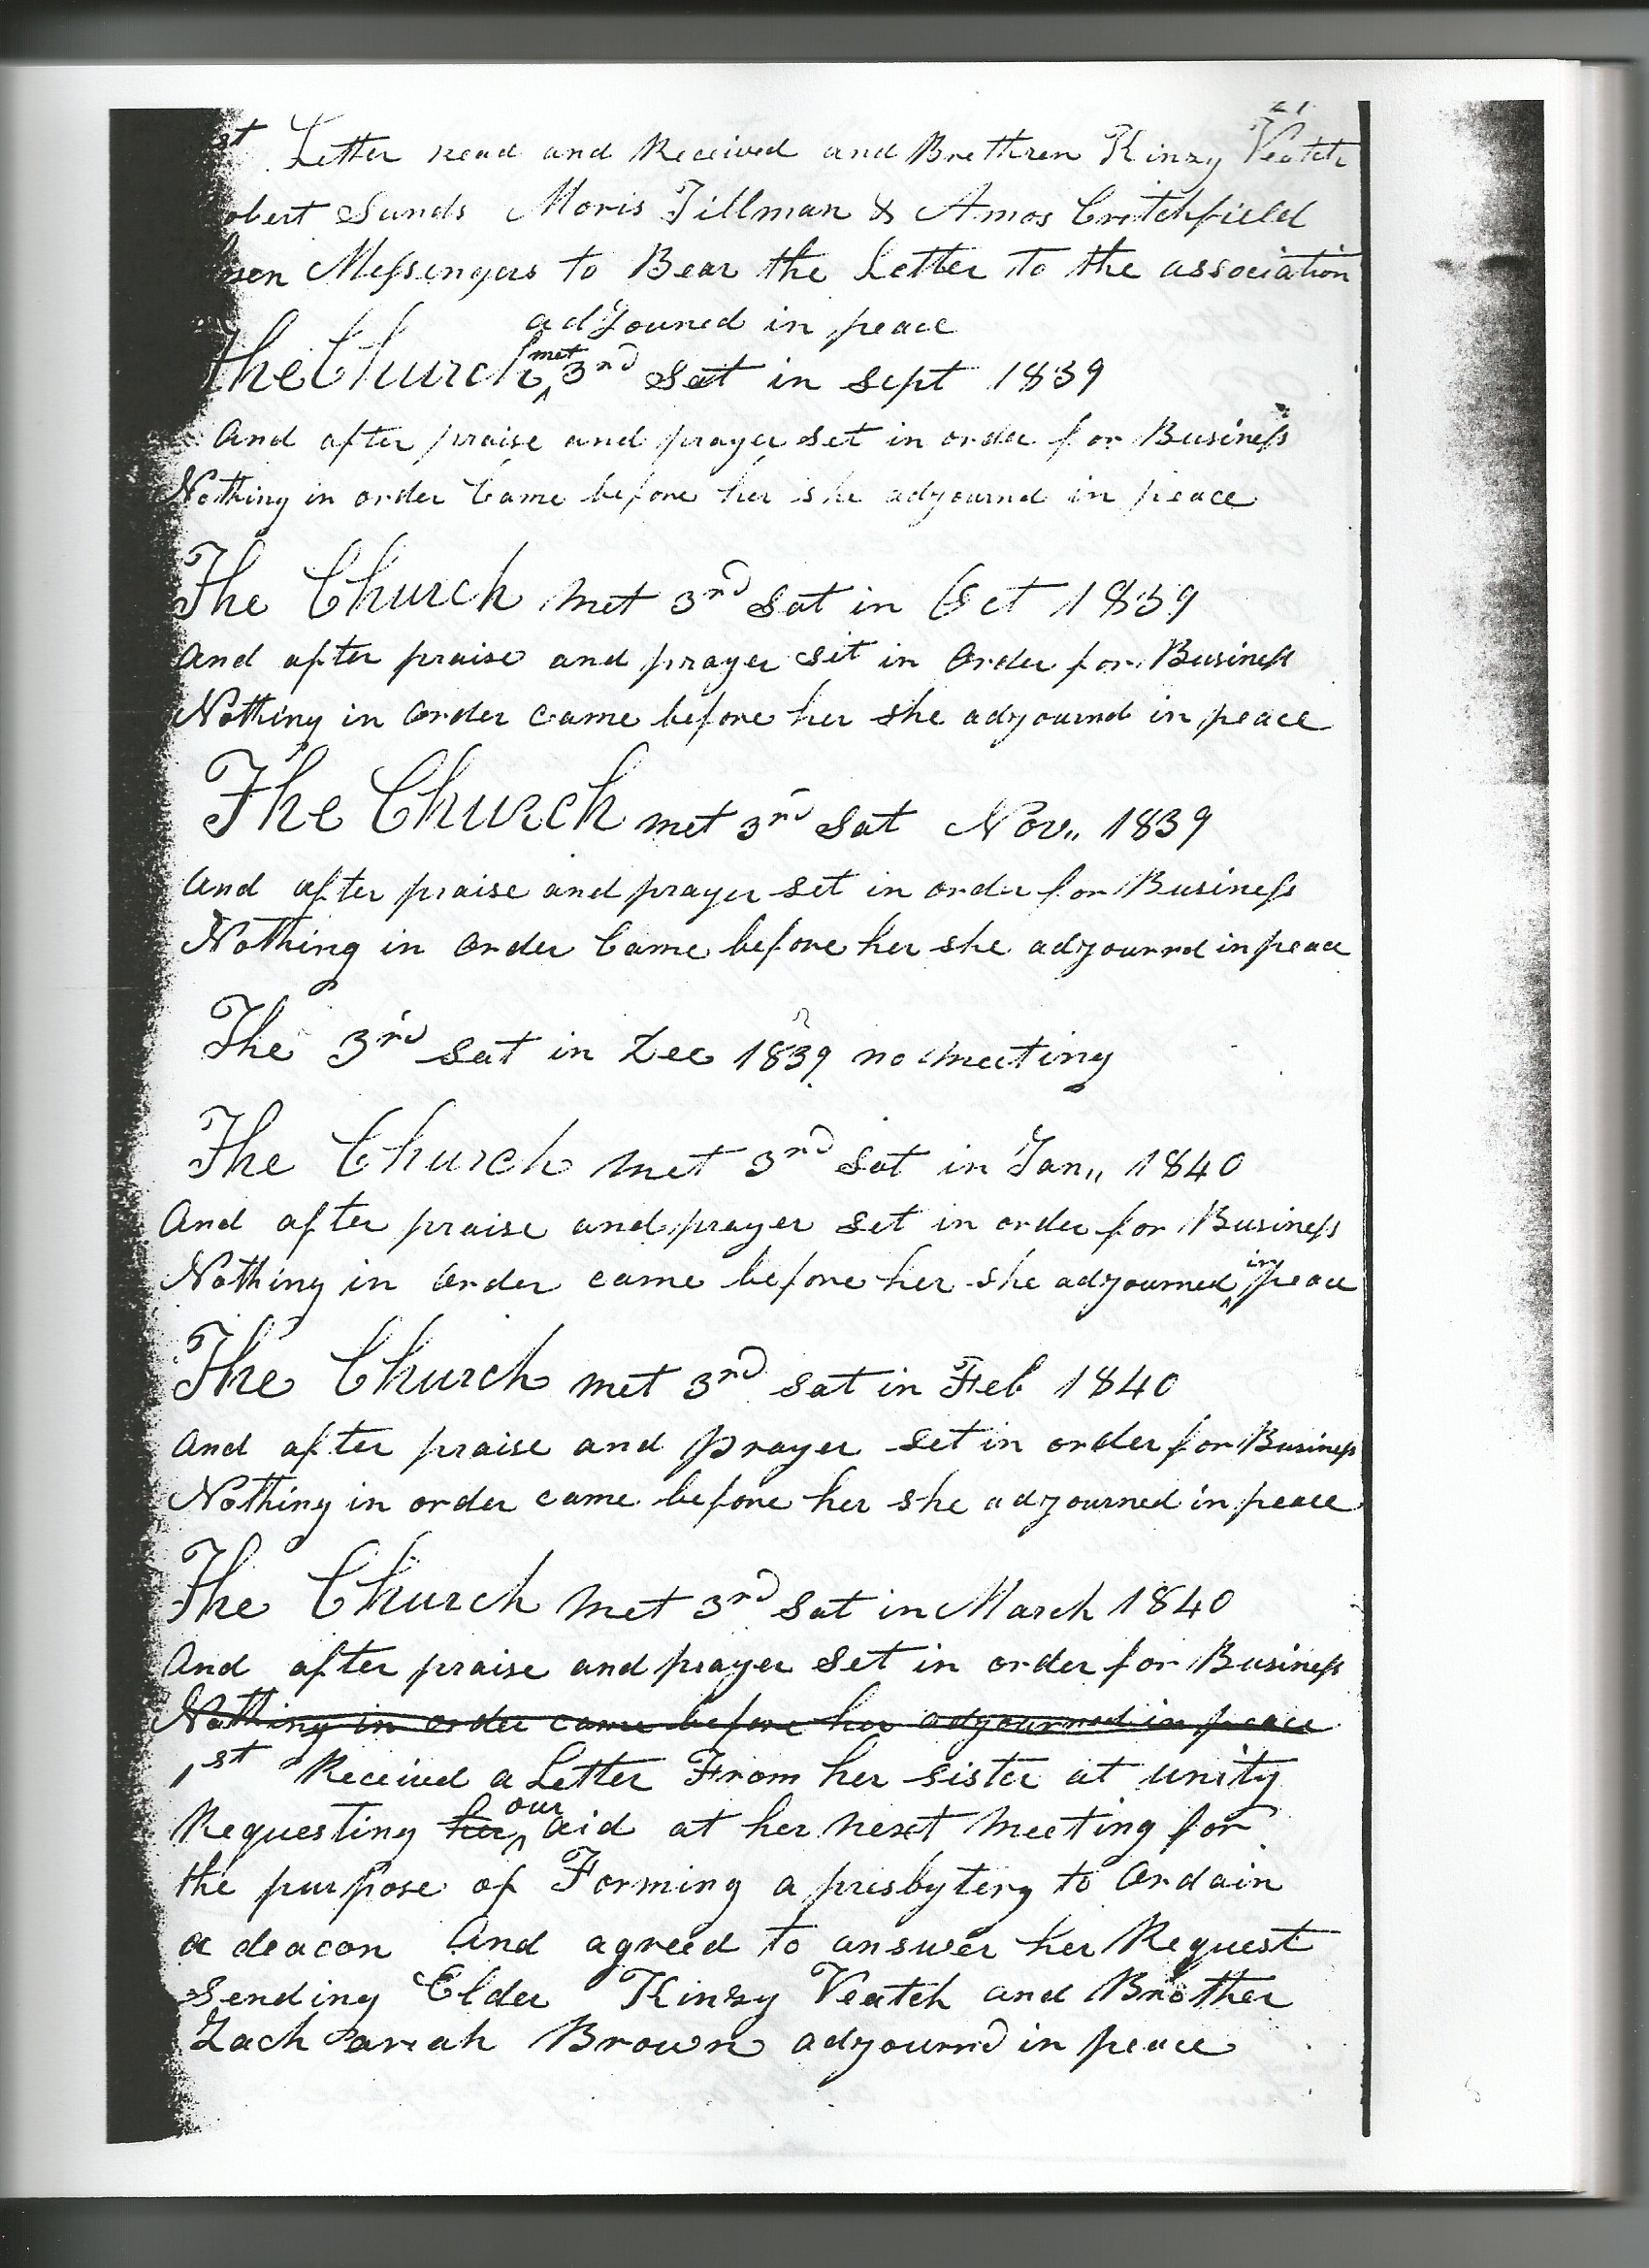 st Letter read and Received and Brethren Kinzy Veatch
obert Sands Moris Tillman & Amos Critchfield
sen Messengers to Bear the Letter to the association
adjouned in peace
The Church met 3rd Sat in Sept 1839
And after praise and prayer set in order for Business
Nothing in order Came before her she adjournd in peace
The Church met 3rd Sat in Oct 1839
And after praise and prayer sit in Order for Business
Nothing in Order came before her she adjournd in peace
The Church met 3rd Sat Nov,, 1839
And after praise and prayer set in order for Business
Nothing in Order Came before her she adjournd in peace
The 3rd Sat in Dec 1839 no meeting
The Church met 3rd Sat in Jan,, 1840
And after praise and prayer set in order for Business
Nothing in Order came before her she adjourned in peace
The Church met 3rd Sat in Feb 1840
And after praise and prayer set in order for Business
Nothing in order came before her she adjourned in peace
The Church met 3rd Sat in March 1840
And after praise and prayer set in order for Business
Nothing in order came before her adjourned in peace
1st Received a Letter From her sister at unity
Requesting her our aid at her next meeting for
the purpose of Forming a presbytery to Ordain
a deacon And agreed to answer her Request
Sending Elder Kinzy Veatch and Brother
Zachariah Brown adjournd in peace